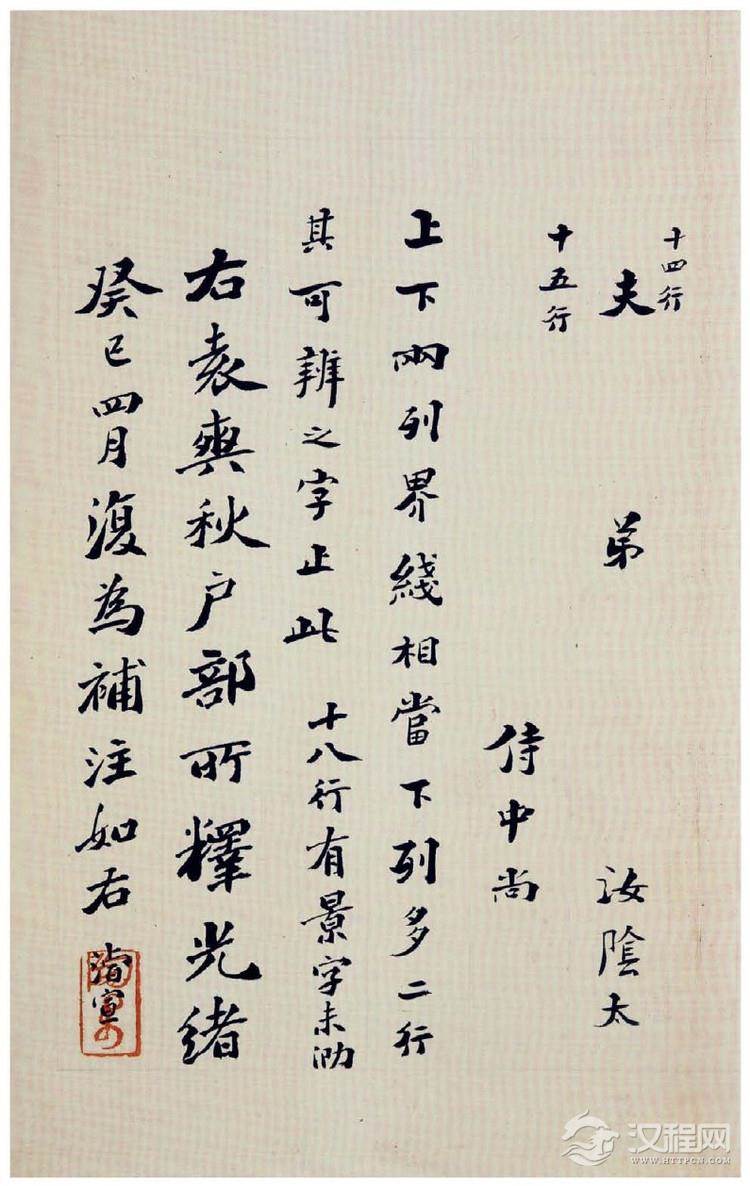 十四行
夫 弟 汝陰太
十五行
侍中尚
上下兩列界綫相當下列多二行
其可辨之字止此 十八行有景字未泐
右袁爽秋户部所釋光緒
癸巳四月復為補注如右 洵宣
汉程网
WWW.HTTPCN.COM